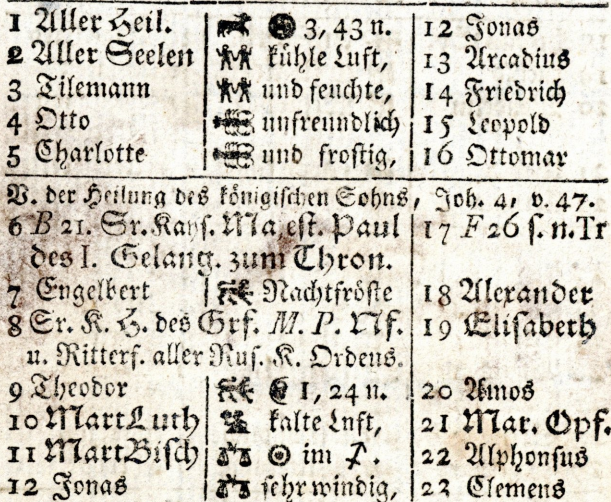 1 Aller Heil. 3, 43 n. 12 Jonas
2 Aller Seelen kühle Luft, 13 Arcadius
3 Tilemann und feuchte, 14 Friedrich
4 Otto unfreundlich 15 Leopold
5 Charlotte und frostig, 16 Ottomar
V. der Heilung des königischen Sohns, Joh. 4, v. 47.
6 B 21. Sr. Kays. Majest. Paul 17 F 26 s. n. Tr
des I. Gelang. zum Thron.
7 Engelbert Nachtfröste 18 Alexander
8 Sr. K. H. des Grf. M. P. Nf. 19 Elisabeth
u. Ritterf. aller Rus. K. Ordens.
9 Theodor 1, 24 n. 20 Amos
10 Mart Luth kalte Luft, 21 Mar. Opf.
11 Mart Bisch ☉ im ♐. 22 Alphonsus
12 Jonas sehr windig, 23 Clemens